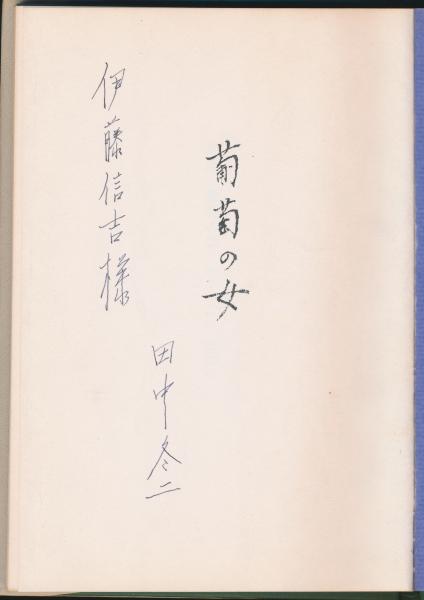 葡萄の女
伊藤信吉様
田中冬二